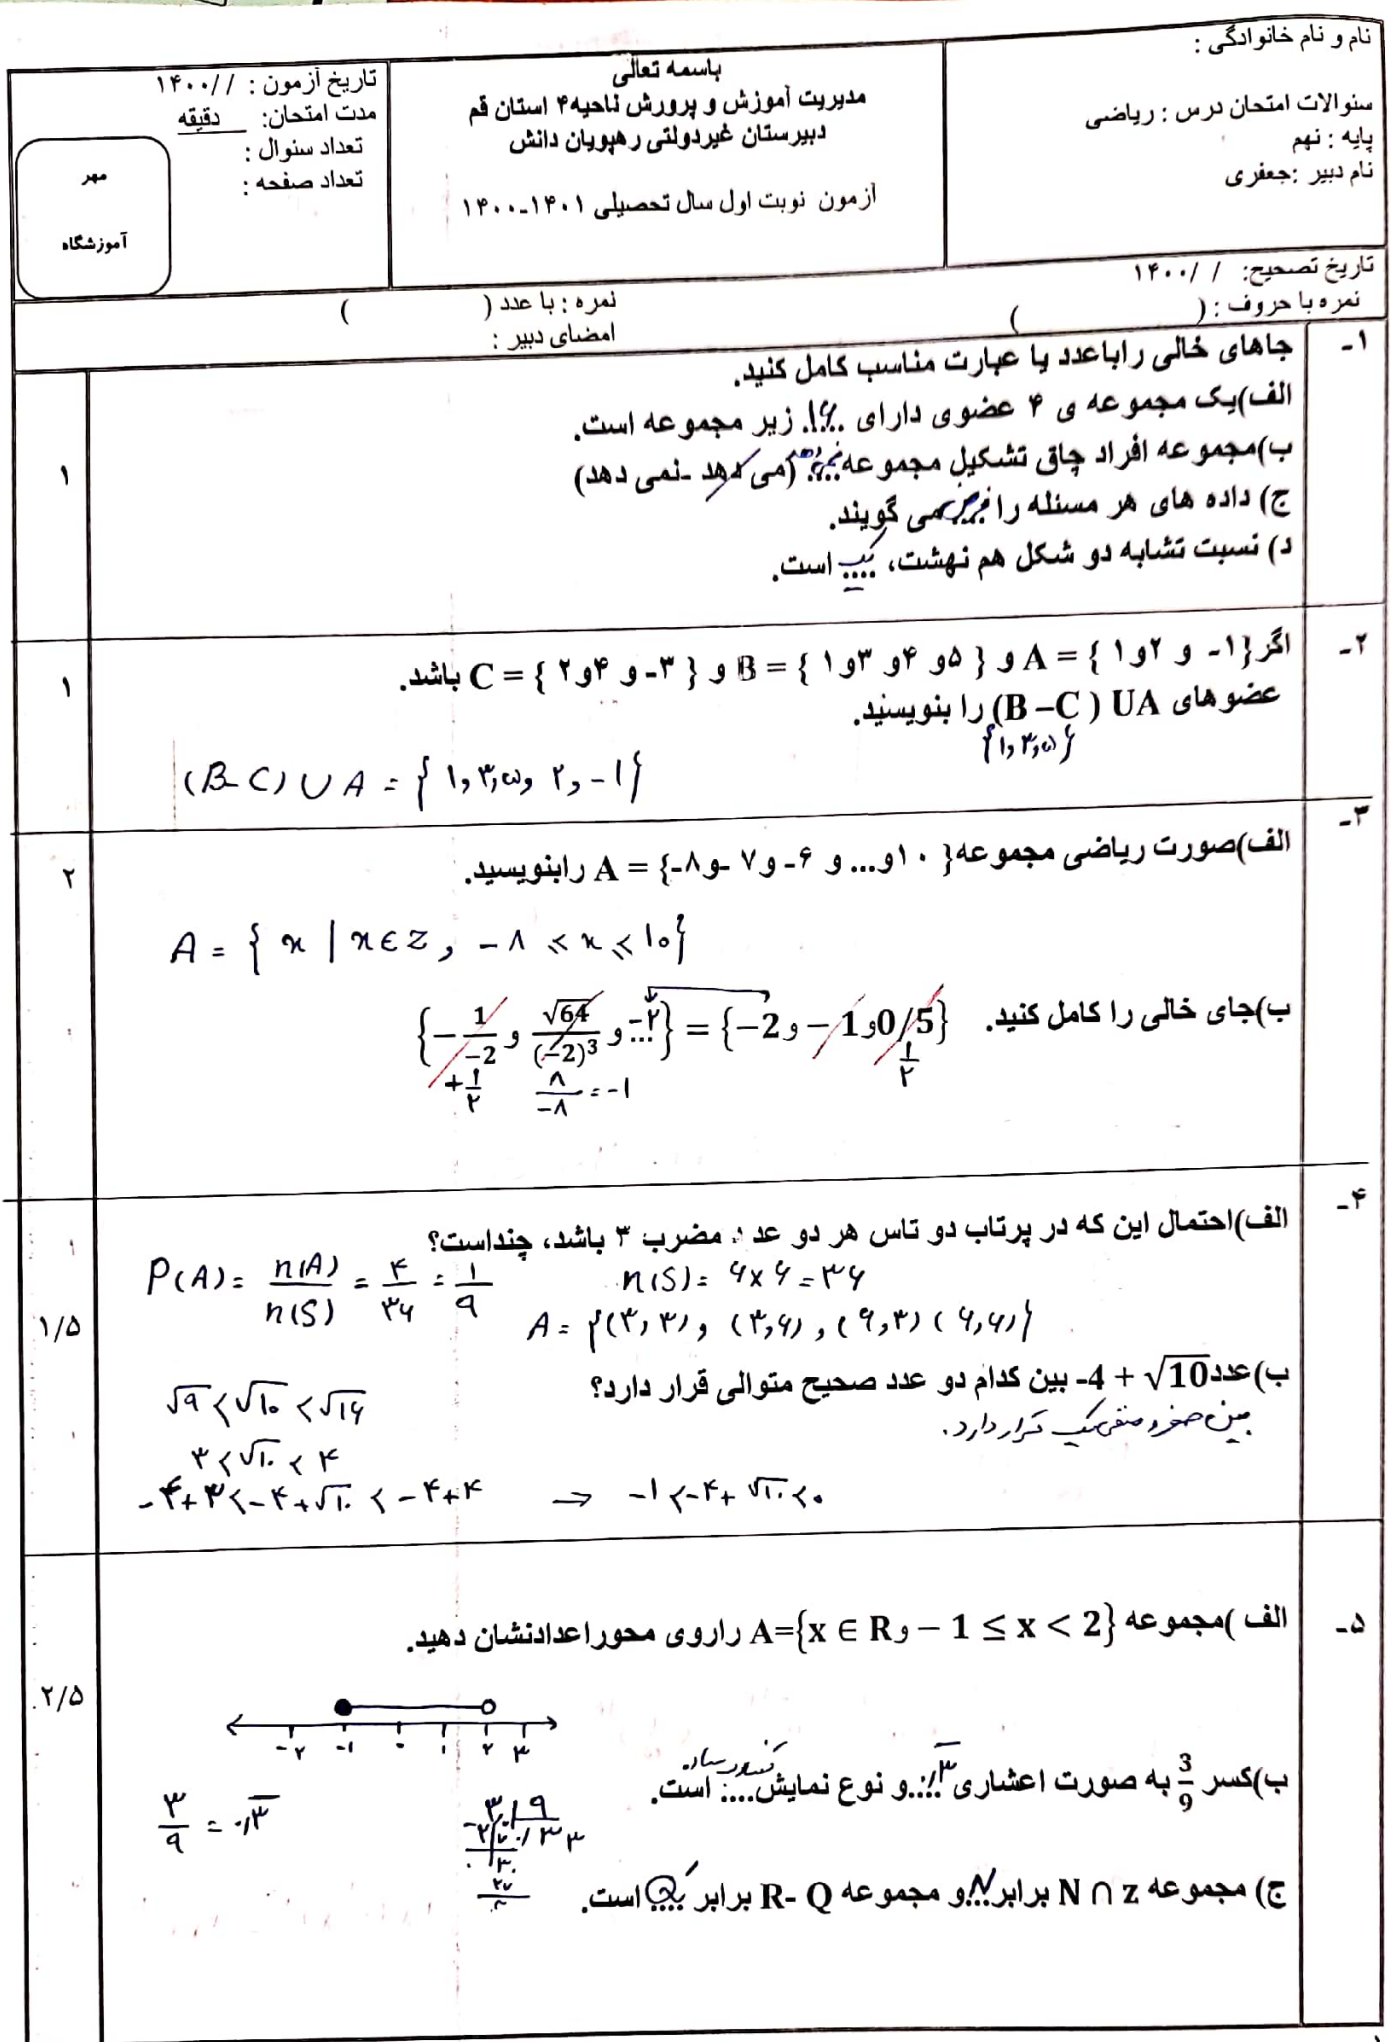 نام و نام خانوادگی :
سئوالات امتحان درس : ریاضی
پایه : نهم
نام دبیر :جعفری
باسمه تعالی
مدیریت آموزش و پرورش ناحیه۴ استان قم
دبیرستان غیردولتی رهپویان دانش
آزمون نوبت اول سال تحصیلی ۱۴۰۱-۱۴۰۰
تاریخ آزمون : / /۱۴۰۰
مدت امتحان: دقیقه
تعداد سئوال :
تعداد صفحه :
مهر
آموزشگاه
تاریخ تصحیح: / /۱۴۰۰
نمره با حروف : ( )
نمره : با عدد ( )
امضای دبیر :
۱- جاهای خالی راباعدد یا عبارت مناسب کامل کنید.
الف)یک مجموعه ی ۴ عضوی دارای ..۱۶.. زیر مجموعه است.
ب)مجموعه افراد چاق تشکیل مجموعه نمی دهد (می دهد -نمی دهد)
۱
ج) داده های هر مسئله را فرض می گویند.
د) نسبت تشابه دو شکل هم نهشت، یک است.
۲- اگر{۱- و ۲و۱ } = A و { ۵و ۴و ۳و۱ } = B و { ۳- و ۴و۲ } = C باشد.
۱
عضوهای (B –C ) UA را بنویسنید.
{۱,۳,۵}
(B-C) ∪ A = { ۱,۳,۵, ۲, -۱}
۳-
الف)صورت ریاضی مجموعه{ ۱۰و... و ۶- و۷ -و۸-} = A رابنویسید.
۲
A = { x | x∈Z , -۸ ≤ x ≤ ۱۰}
ب)جای خالی را کامل کنید. {−1/−2 و √64/(−2)³ و ...−۲} = {−2 و −1 و 0/5}
+۱/۲ ۸/−۸ = −۱ ۱/۲
۴- الف)احتمال این که در پرتاب دو تاس هر دو عدد مضرب ۳ باشد، چنداست؟
P(A) = n(A)/n(S) = ۴/۳۶ = ۱/۹ n(S) = ۶×۶ = ۳۶
۱/۵
A = {(۳,۳), (۳,۶), (۶,۳) (۶,۶)}
ب)عدد √10 + 4- بین کدام دو عدد صحیح متوالی قرار دارد؟
√۹ < √۱۰ < √۱۶ بین صفر و منفی یک قرار دارد.
۳ < √۱۰ < ۴
-۴+۳ < -۴+√۱۰ < -۴+۴ ⇒ -۱ < -۴+√۱۰ < ۰
۵- الف )مجموعه A={x ∈ R و − 1 ≤ x < 2} راروی محوراعدادنشان دهید.
۲/۵
-۲ -۱ ۰ ۱ ۲ ۳
ب)کسر 3/9 به صورت اعشاری ۰/۳̅ ...و نوع نمایش.... است.
۳/۹ = ۰/۳̅
ج) مجموعه N ∩ z برابر N و مجموعه R- Q برابر Q′ است.